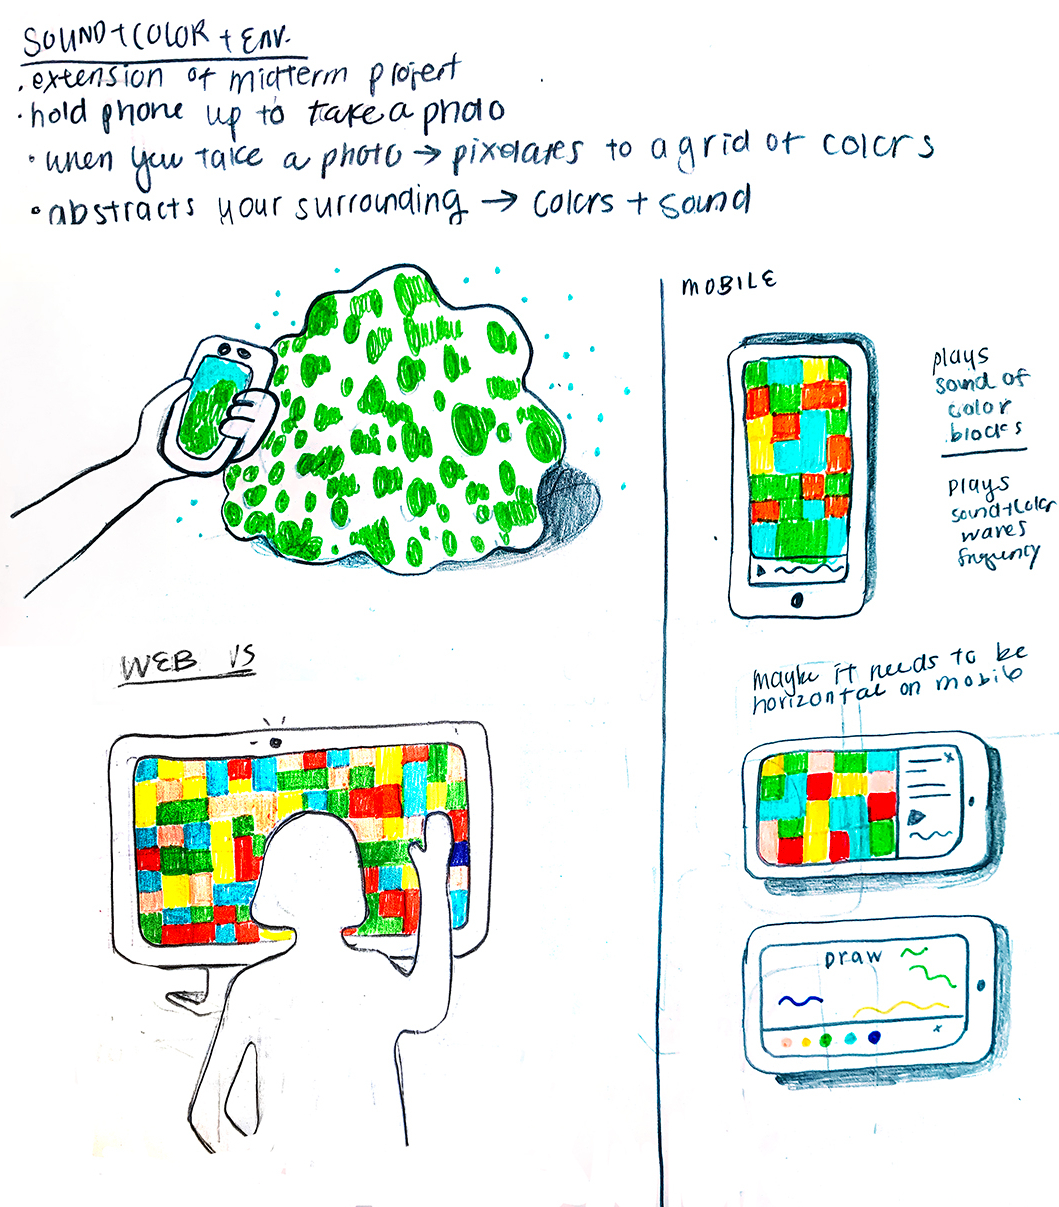 SOUND + COLOR + ENV.
. extension of midterm project
· hold phone up to take a photo
· when you take a photo → pixelates to a grid of colors
• abstracts your surrounding → colors + sound
MOBILE
plays
sound of
color
blocks
plays
sound + color
waves
frequency
WEB VS
maybe it needs to be
horizontal on mobile
x
DRAW
x